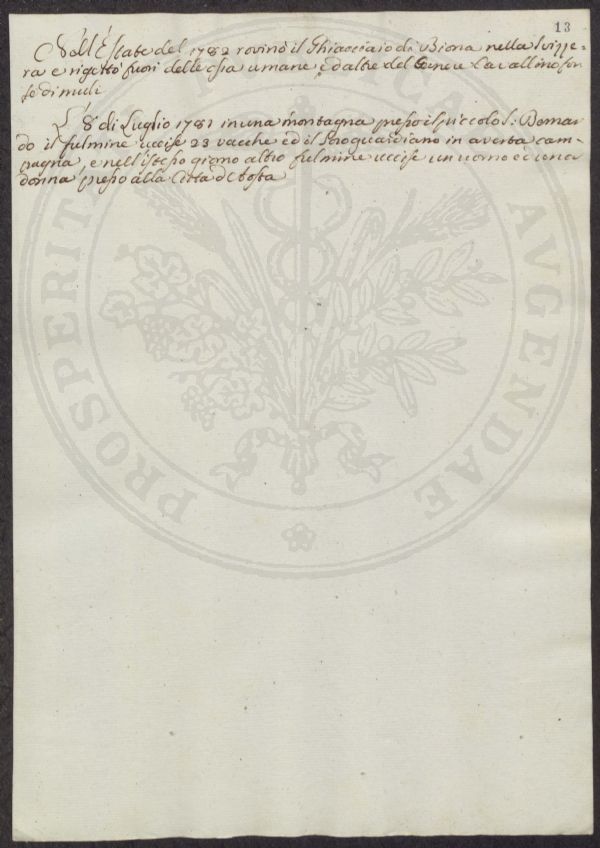 13
Nell'Estate del 1782 rovinò il Ghiacciaio di Biona nella Svizze-
ra e rigettò fuori delle ossa umane, ed altre del Genere Cavallino for
se di muli
L' 8 di Luglio 1781 in una montagna presso il piccolo S: Bernar
do il fulmine uccise 23 vacche ed il loro guardiano in averta cam-
pagna, e nell'istesso giorno altro fulmine uccise un uomo ed una
donna presso alla Città d'Aosta
PROSPERITATI AVGENDAE